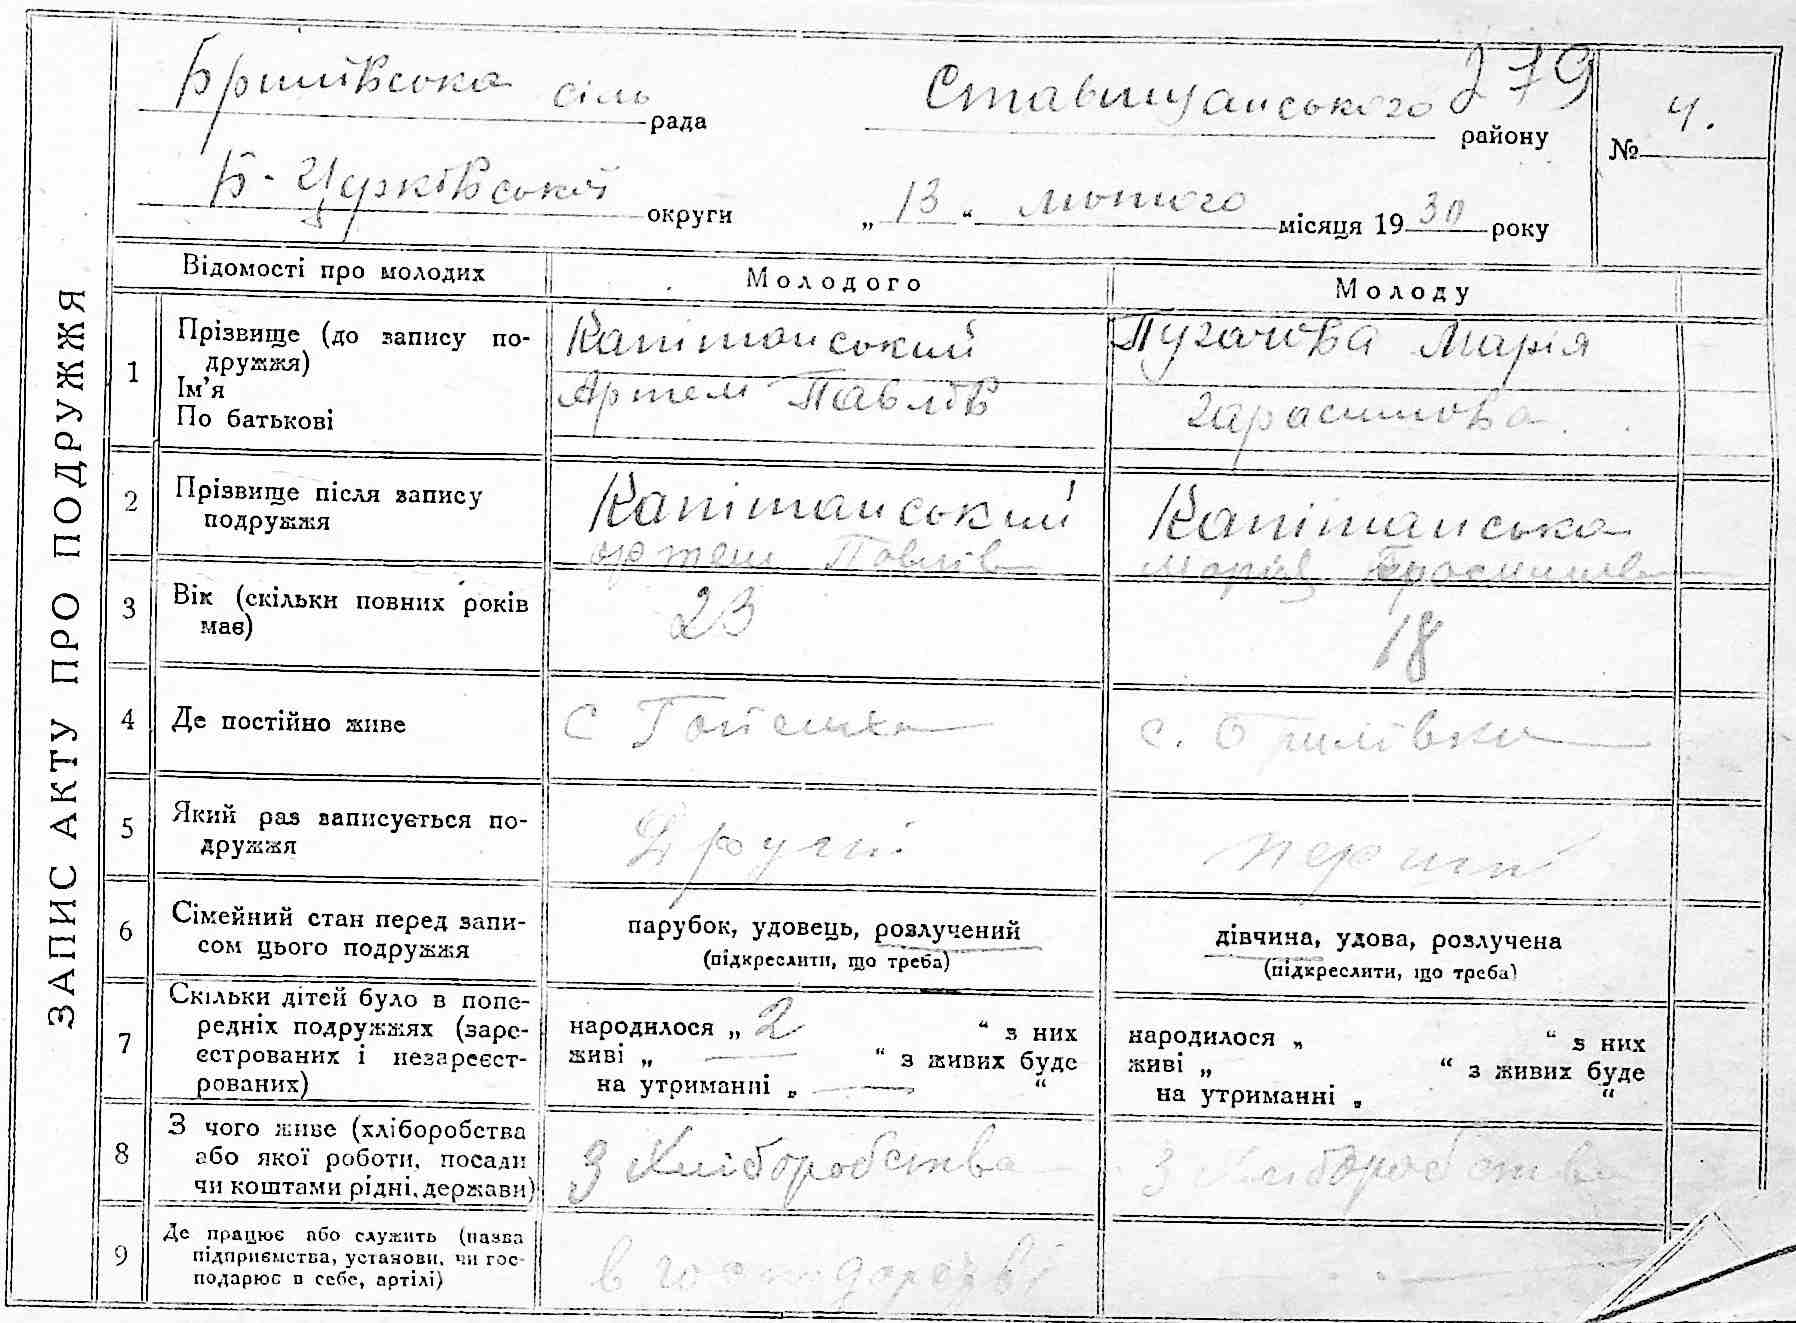 ЗАПИС АКТУ ПРО ПОДРУЖЖЯ
279
Брилівська сіль рада Ставищанського району
№ 4.
Б-Церківської округи „13“ лютого місяця 1930 року
Відомості про молодих Молодого Молоду
1 Прізвище (до запису по-
дружжя)
Ім’я
По батькові
Капітанський
Артем Павлів
Пугачова Марія
Гарасимова
2 Прізвище після запису
подружжя
Капітанський
Артем Павлів
Капітанська
Марія
3 Вік (скільки повних років
має)
23
18
4 Де постійно живе
с
с. Брилівки
5 Який раз записується по-
дружжя
Другий
перший
6 Сімейний стан перед запи-
сом цього подружжя
парубок, удовець, розлучений
(підкреслити, що треба)
дівчина, удова, розлучена
(підкреслити, що треба)
7 Скільки дітей було в попе-
редніх подружжях (заре-
єстрованих і незареєст-
рованих)
народилося „ 2 “ з них
живі „ — “ з живих буде
на утриманні „ — “
народилося „ “ з них
живі „ “ з живих буде
на утриманні „ “
8 З чого живе (хліборобства
або якої роботи, посади
чи коштами рідні, держави)
З Хліборобства
З Хліборобства
9 Де працює або служить (назва
підприємства, установи, чи гос-
подарює в себе, артілі)
в господарстві